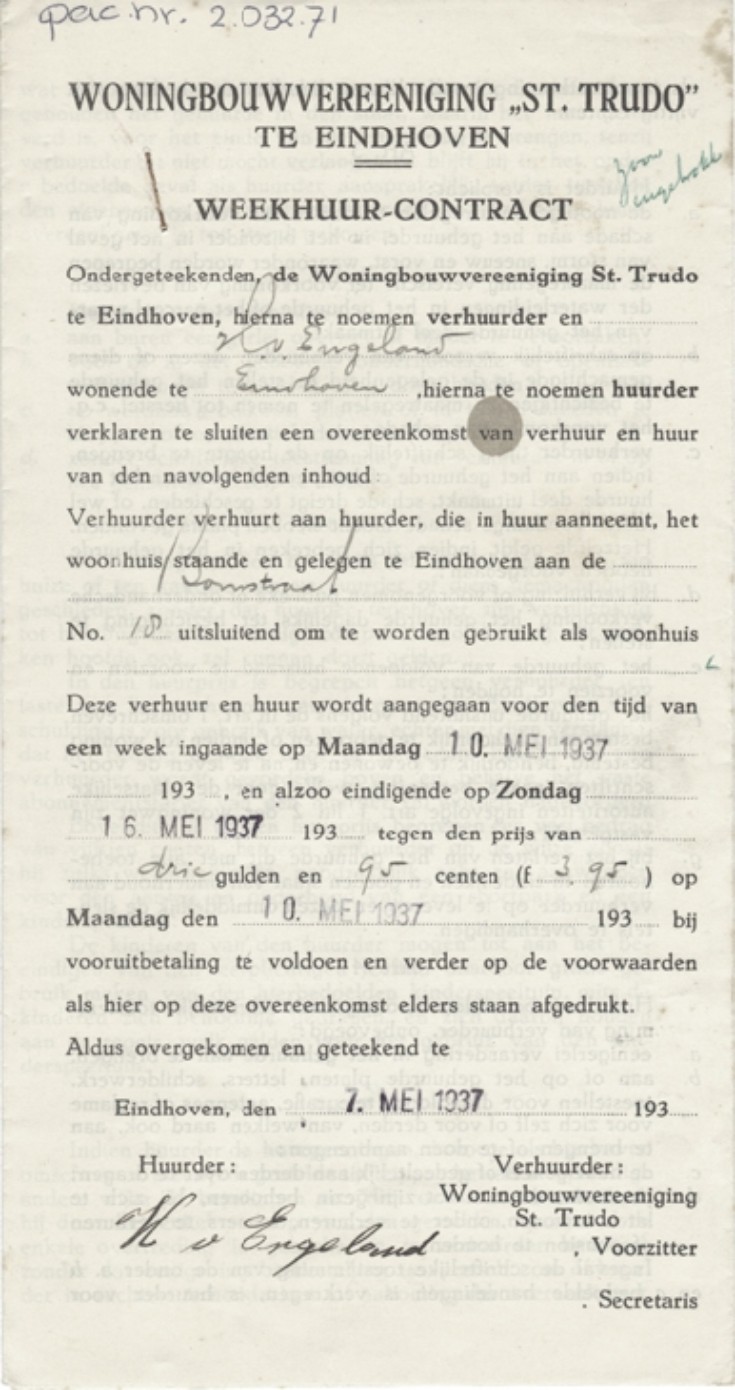 pac.nr. 2.032.71
WONINGBOUWVEREENIGING „ST. TRUDO”
TE EINDHOVEN
WEEKHUUR-CONTRACT
Ondergeteekenden, de Woningbouwvereeniging St. Trudo
te Eindhoven, hierna te noemen verhuurder en
H. v. Engeland
wonende te Eindhoven ,hierna te noemen huurder
verklaren te sluiten een overeenkomst van verhuur en huur
van den navolgenden inhoud:
Verhuurder verhuurt aan huurder, die in huur aanneemt, het
woonhuis staande en gelegen te Eindhoven aan de
No. 18 uitsluitend om te worden gebruikt als woonhuis
Deze verhuur en huur wordt aangegaan voor den tijd van
een week ingaande op Maandag 10. MEI 1937
193 , en alzoo eindigende op Zondag
16. MEI 1937 193 tegen den prijs van
drie gulden en 95 centen (f 3.95 ) op
Maandag den 10. MEI 1937 193 bij
vooruitbetaling te voldoen en verder op de voorwaarden
als hier op deze overeenkomst elders staan afgedrukt.
Aldus overgekomen en geteekend te
Eindhoven, den 7. MEI 1937 193
Huurder: Verhuurder:
Woningbouwvereeniging
St. Trudo
H v Engeland , Voorzitter
. Secretaris